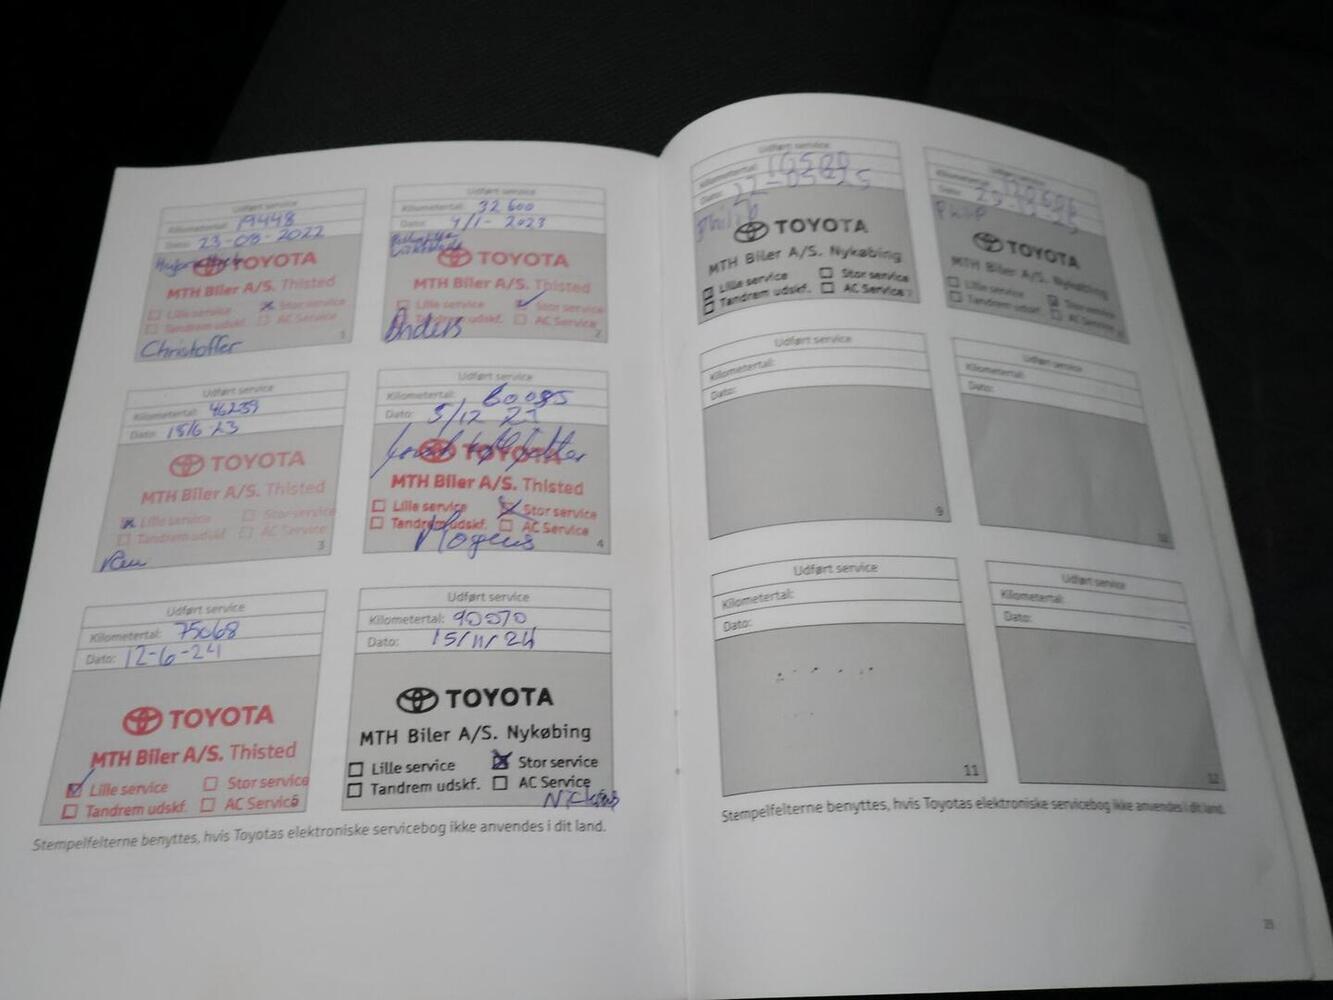 Udført service
Kilometertal: 19448
Dato: 23-08-2022
TOYOTA
MTH Biler A/S. Thisted
Lille service Stor service
Tandrem udskf. AC Service
1
Christoffer
Udført service
Kilometertal: 32600
Dato: 4/1-2023
TOYOTA
MTH Biler A/S. Thisted
Lille service Stor service
Tandrem udskf. AC Service
2
Anders
Udført service
Kilometertal: 46259
Dato: 15/6 23
TOYOTA
MTH Biler A/S. Thisted
Lille service Stor service
Tandrem udskf. AC Service
3
Udført service
Kilometertal: 60085
Dato: 5/12 23
TOYOTA
MTH Biler A/S. Thisted
Lille service Stor service
Tandrem udskf. AC Service
4
Mogens
Udført service
Kilometertal: 75068
Dato: 12-6-24
TOYOTA
MTH Biler A/S. Thisted
Lille service Stor service
Tandrem udskf. AC Service
5
Udført service
Kilometertal: 90070
Dato: 15/11/24
TOYOTA
MTH Biler A/S. Nykøbing
Lille service Stor service
Tandrem udskf. AC Service
Stempelfelterne benyttes, hvis Toyotas elektroniske servicebog ikke anvendes i dit land.
Udført service
Kilometertal:
Dato:
Philip
TOYOTA
MTH Biler A/S. Nykøbing
Lille service Stor service
Tandrem udskf. AC Service
Udført service
Kilometertal:
Dato:
Philip
TOYOTA
MTH Biler A/S. Nykøbing
Lille service Stor service
Tandrem udskf. AC Service
Udført service
Kilometertal:
Dato:
9
Udført service
Kilometertal:
Dato:
10
Udført service
Kilometertal:
Dato:
11
Udført service
Kilometertal:
Dato:
12
Stempelfelterne benyttes, hvis Toyotas elektroniske servicebog ikke anvendes i dit land.